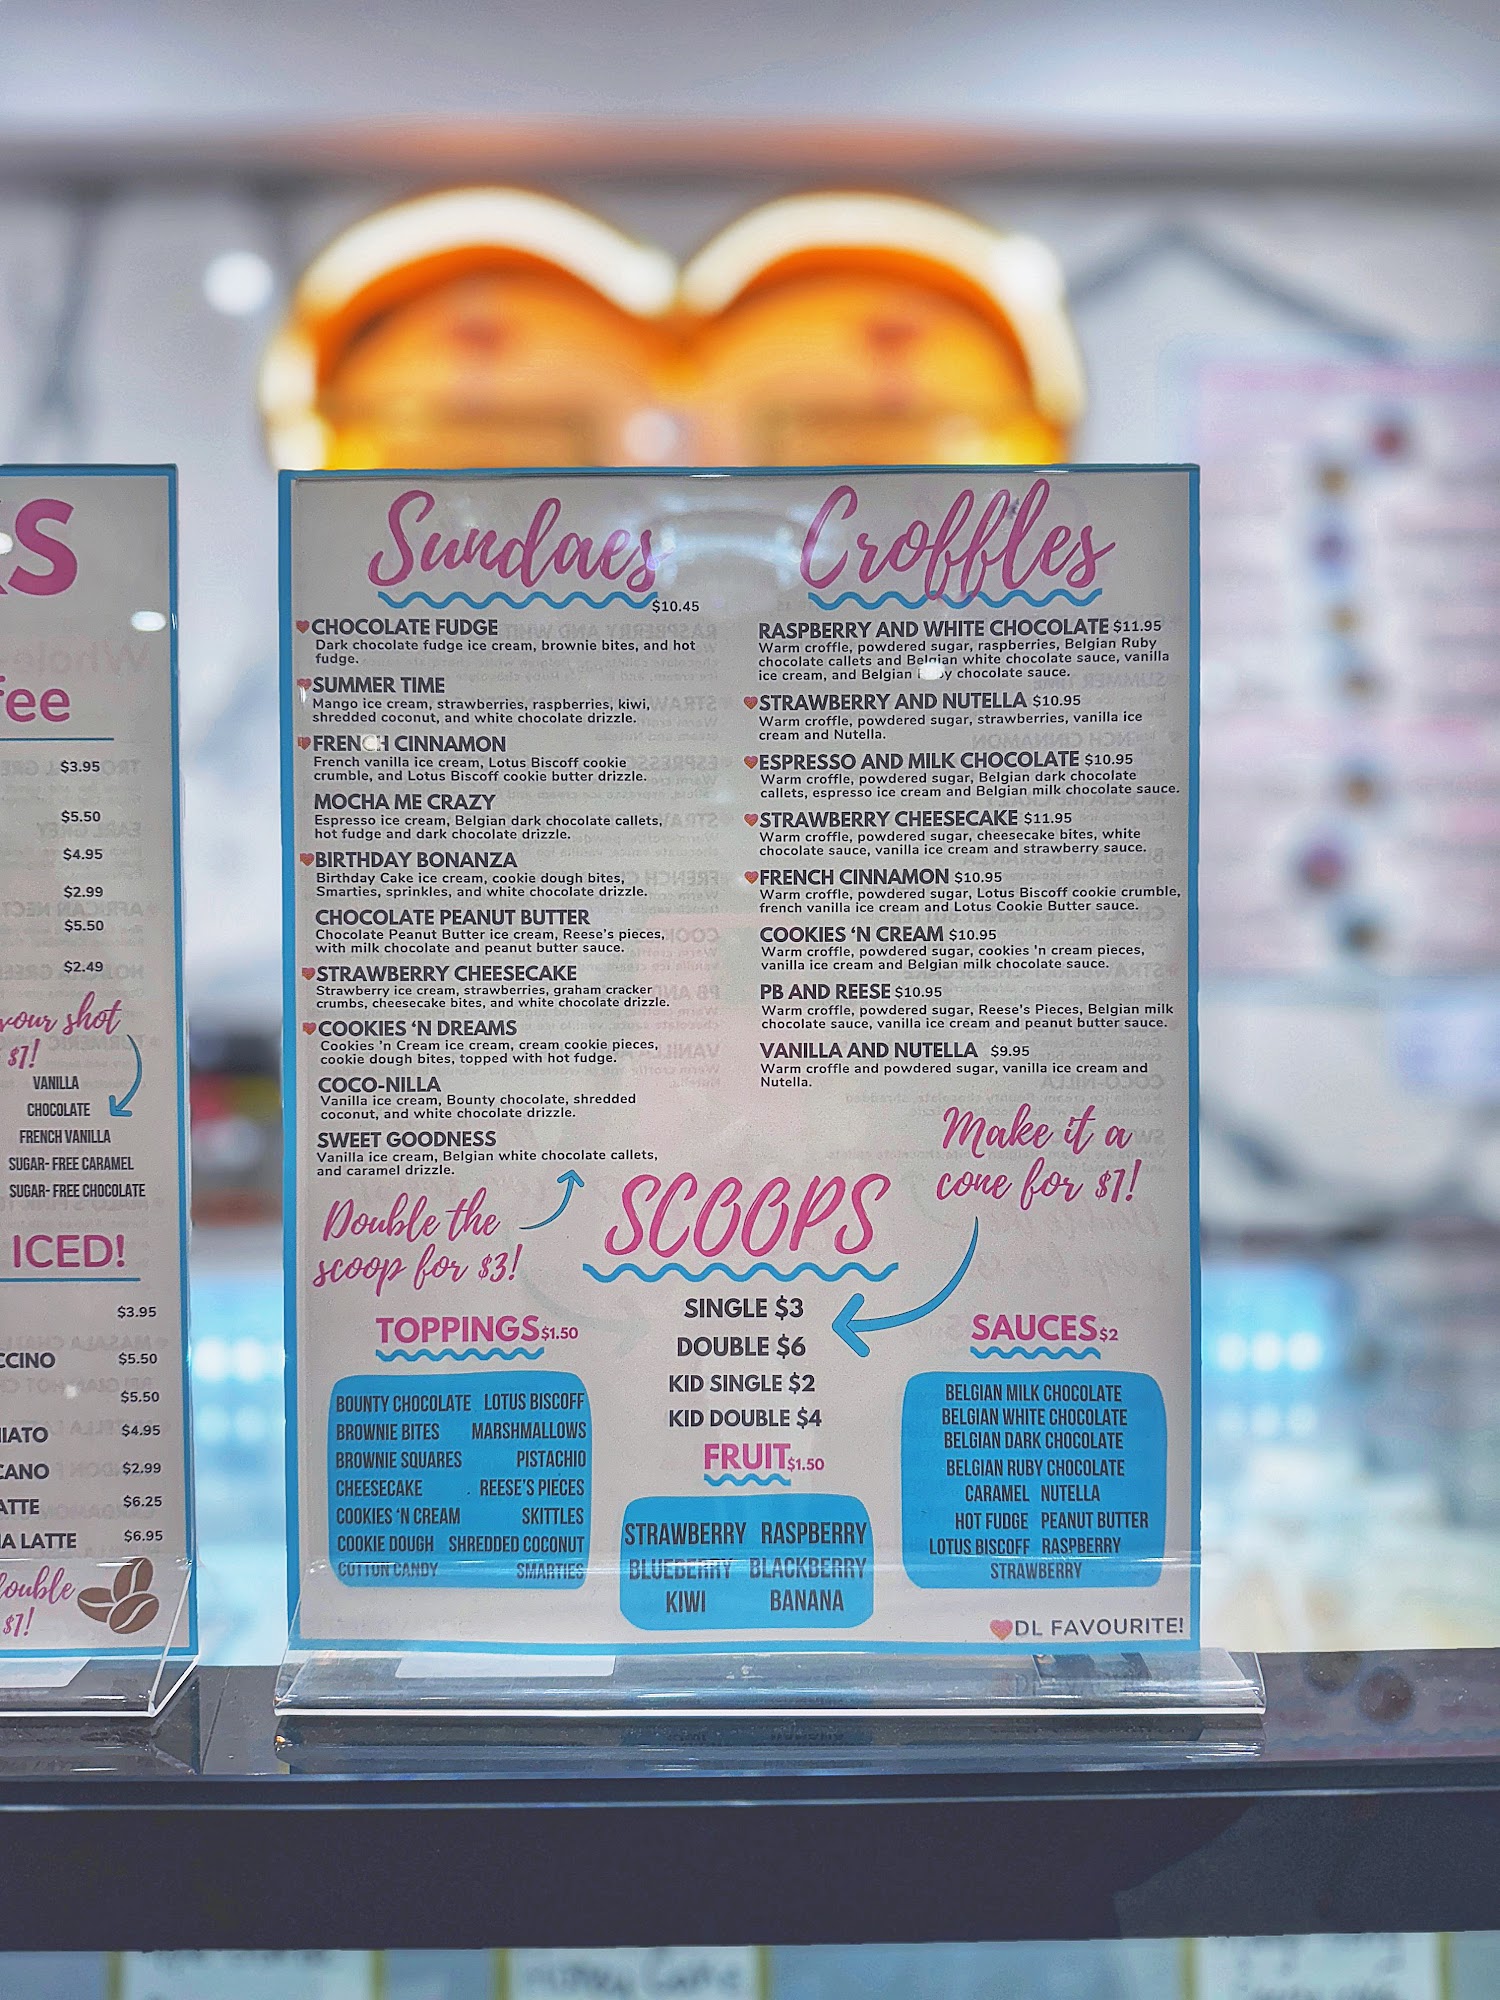 S
fee
$3.95
$5.50
$4.95
$2.99
$5.50
$2.49
$1!
VANILLA
CHOCOLATE
FRENCH VANILLA
SUGAR- FREE CARAMEL
SUGAR- FREE CHOCOLATE
ICED!
$3.95
CCINO $5.50
$5.50
IATO $4.95
CANO $2.99
ATTE $6.25
A LATTE $6.95
double
$1!
Sundaes
$10.45
CHOCOLATE FUDGE
Dark chocolate fudge ice cream, brownie bites, and hot
fudge.
SUMMER TIME
Mango ice cream, strawberries, raspberries, kiwi,
shredded coconut, and white chocolate drizzle.
FRENCH CINNAMON
French vanilla ice cream, Lotus Biscoff cookie
crumble, and Lotus Biscoff cookie butter drizzle.
MOCHA ME CRAZY
Espresso ice cream, Belgian dark chocolate callets,
hot fudge and dark chocolate drizzle.
BIRTHDAY BONANZA
Birthday Cake ice cream, cookie dough bites,
Smarties, sprinkles, and white chocolate drizzle.
CHOCOLATE PEANUT BUTTER
Chocolate Peanut Butter ice cream, Reese's pieces,
with milk chocolate and peanut butter sauce.
STRAWBERRY CHEESECAKE
Strawberry ice cream, strawberries, graham cracker
crumbs, cheesecake bites, and white chocolate drizzle.
COOKIES 'N DREAMS
Cookies 'n Cream ice cream, cream cookie pieces,
cookie dough bites, topped with hot fudge.
COCO-NILLA
Vanilla ice cream, Bounty chocolate, shredded
coconut, and white chocolate drizzle.
SWEET GOODNESS
Vanilla ice cream, Belgian white chocolate callets,
and caramel drizzle.
Double the
scoop for $3!
Croffles
RASPBERRY AND WHITE CHOCOLATE $11.95
Warm croffle, powdered sugar, raspberries, Belgian Ruby
chocolate callets and Belgian white chocolate sauce, vanilla
ice cream, and Belgian Ruby chocolate sauce.
STRAWBERRY AND NUTELLA $10.95
Warm croffle, powdered sugar, strawberries, vanilla ice
cream and Nutella.
ESPRESSO AND MILK CHOCOLATE $10.95
Warm croffle, powdered sugar, Belgian dark chocolate
callets, espresso ice cream and Belgian milk chocolate sauce.
STRAWBERRY CHEESECAKE $11.95
Warm croffle, powdered sugar, cheesecake bites, white
chocolate sauce, vanilla ice cream and strawberry sauce.
FRENCH CINNAMON $10.95
Warm croffle, powdered sugar, Lotus Biscoff cookie crumble,
french vanilla ice cream and Lotus Cookie Butter sauce.
COOKIES 'N CREAM $10.95
Warm croffle, powdered sugar, cookies 'n cream pieces,
vanilla ice cream and Belgian milk chocolate sauce.
PB AND REESE $10.95
Warm croffle, powdered sugar, Reese's Pieces, Belgian milk
chocolate sauce, vanilla ice cream and peanut butter sauce.
VANILLA AND NUTELLA $9.95
Warm croffle and powdered sugar, vanilla ice cream and
Nutella.
Make it a
cone for $1!
SCOOPS
SINGLE $3
DOUBLE $6
KID SINGLE $2
KID DOUBLE $4
TOPPINGS $1.50
BOUNTY CHOCOLATE LOTUS BISCOFF
BROWNIE BITES MARSHMALLOWS
BROWNIE SQUARES PISTACHIO
CHEESECAKE REESE'S PIECES
COOKIES 'N CREAM SKITTLES
COOKIE DOUGH SHREDDED COCONUT
COTTON CANDY SMARTIES
FRUIT $1.50
STRAWBERRY RASPBERRY
BLUEBERRY BLACKBERRY
KIWI BANANA
SAUCES $2
BELGIAN MILK CHOCOLATE
BELGIAN WHITE CHOCOLATE
BELGIAN DARK CHOCOLATE
BELGIAN RUBY CHOCOLATE
CARAMEL NUTELLA
HOT FUDGE PEANUT BUTTER
LOTUS BISCOFF RASPBERRY
STRAWBERRY
DL FAVOURITE!